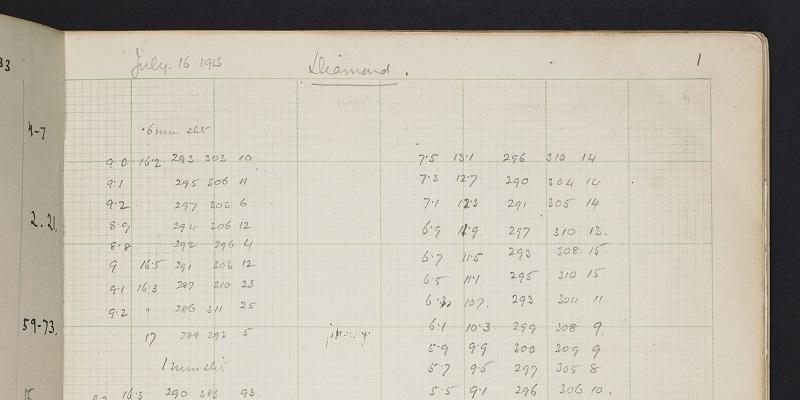 33
4-7
2.21
59-73.
15
July. 16 1913 Diamond. 1
.6mm slit
9.0 16.2 293 303 10
9.1 295 306 11
9.2 297 303 6
8.9 294 306 12
8.8 292 296 4
9 16.5 291 303 12
9.1 16.3 287 310 23
9.2 " 286 311 25
17 288 293 5
1 mm slit
16.3 290 383 93.
7.5 13.1 296 310 14
7.3 12.7 290 304 14
7.1 12.3 291 305 14
6.9 11.9 297 310 13.
6.7 11.5 293 308 15
6.5 11.1 295 310 15
6.3 10.7. 293 304 11
6.1 10.3 299 308 9.
5.9 9.9 300 309 9
5.7 9.5 297 305 8
5.5 9.1 296 306 10.